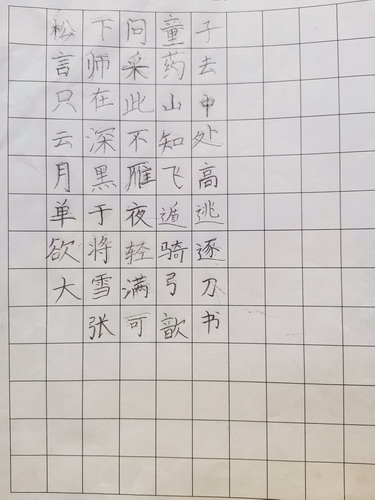 松下问童子
言师采药去
只在此山中
云深不知处
月黑雁飞高
单于夜遁逃
欲将轻骑逐
大雪满弓刀
张可歆书